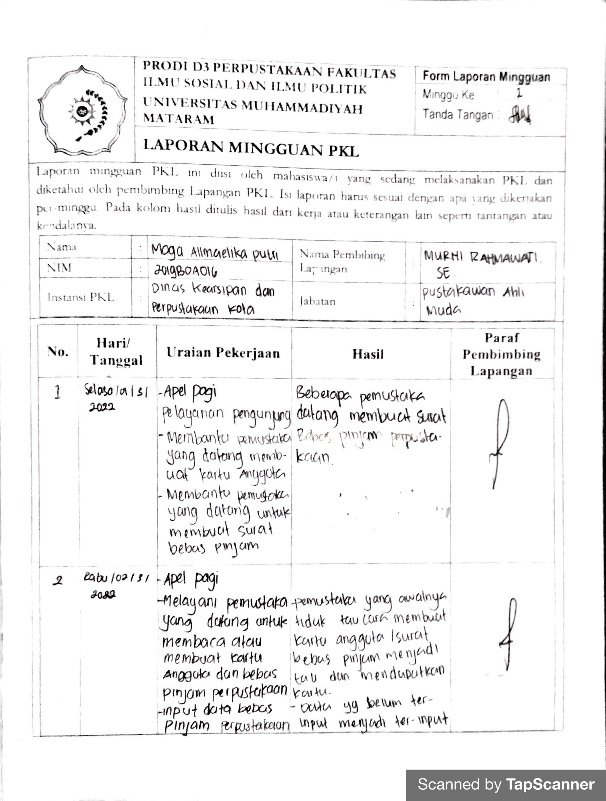 PRODI D3 PERPUSTAKAAN FAKULTAS
ILMU SOSIAL DAN ILMU POLITIK
UNIVERSITAS MUHAMMADIYAH
MATARAM
LAPORAN MINGGUAN PKL
Form Laporan Mingguan
Minggu Ke : 1
Tanda Tangan :
Laporan mingguan PKL ini diisi oleh mahasiswa/i yang sedang melaksanakan PKL dan
diketahui oleh pembimbing Lapangan PKL. Isi laporan harus sesuai dengan apa yang dikerjakan
per-minggu. Pada kolom hasil ditulis hasil dari kerja atau keterangan lain seperti tantangan atau
kendalanya.
Nama : Moga Alimaelika putri
NIM : 2019B0A016
Instansi PKL : Dinas Kearsipan dan
Perpustakaan Kota
Nama Pembibing
Lapangan : MURHI RAHMAWATI.
SE
Jabatan : Pustakawan Ahli
Muda
No. Hari/ Tanggal Uraian Pekerjaan Hasil Paraf Pembimbing Lapangan
1 Selasa/01/3/
2022
- Apel pagi
Pelayanan pengunjung
- Membantu pemustaka
yang datang memb-
uat kartu Anggota
- Membantu pemustaka
yang datang untuk
membuat surat
bebas pinjam
Beberapa pemustaka
datang membuat surat
Bebas pinjam perpusta-
kaan.
2 Rabu/02/3/
2022
- Apel pagi
- Melayani pemustaka
yang datang untuk
membaca atau
membuat kartu
Anggota dan bebas
pinjam perpustakaan
- input data bebas
Pinjam perpustakaan
- pemustaka yang awalnya
tidak tau cara membuat
kartu anggota /surat
bebas pinjam menjadi
tau dan mendapatkan
kartu.
- Data yg belum ter-
input menjadi ter-input
Scanned by TapScanner